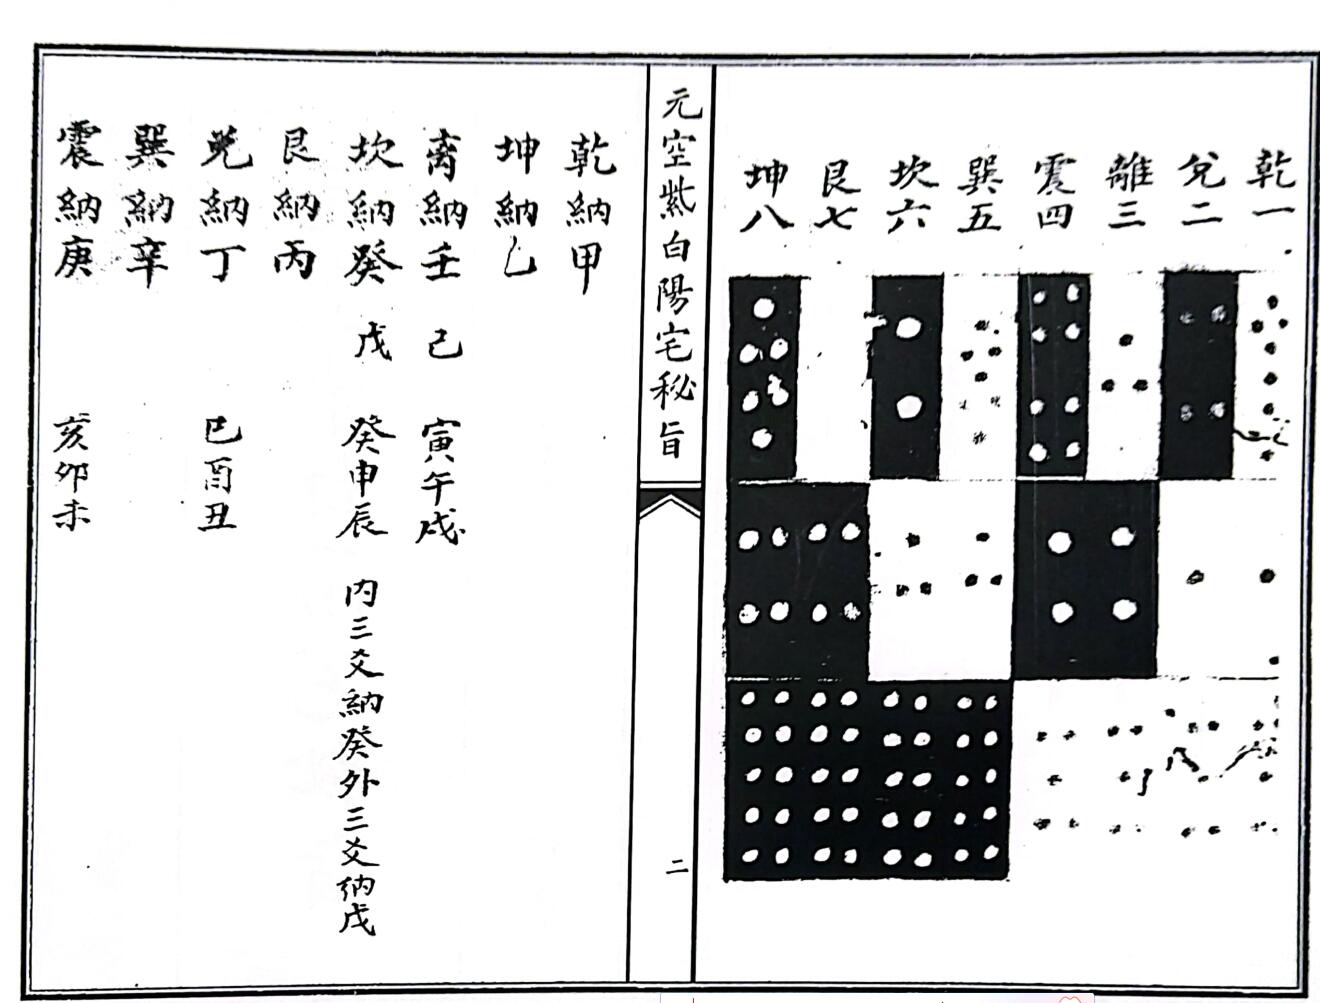 乾一
兌二
離三
震四
巽五
坎六
艮七
坤八
元空紫白陽宅秘旨
二
乾納甲
坤納乙
离納壬 己 寅午戌
坎納癸 戊 癸申辰 内三爻納癸外三爻納戊
艮納丙
兌納丁 巳酉丑
巽納辛
震納庚 亥卯未